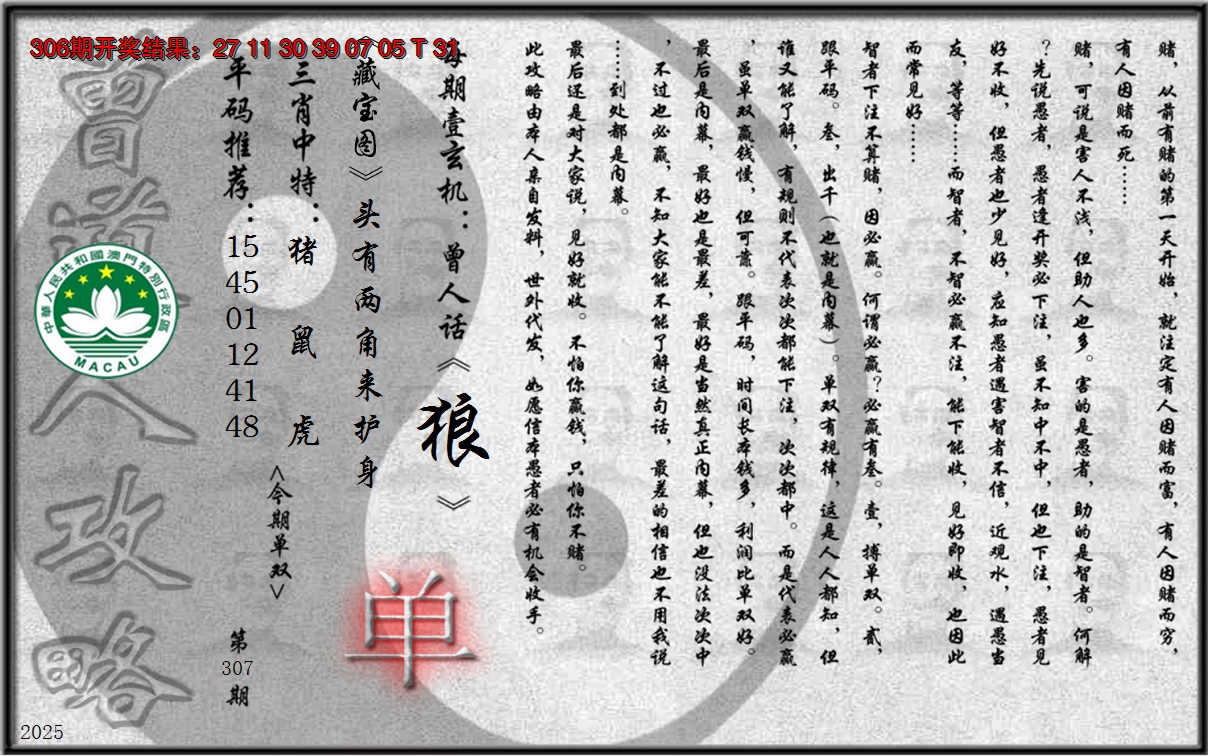 306期开奖结果：27 11 30 39 07 05 T 31
赌，从前有赌的第一天开始，就注定有人因赌而富，有人因赌而穷，
有人因赌而死……
赌，可说是害人不浅，但助人也多。害的是愚者，助的是智者。何解
？先说愚者，愚者逢开奖必下注，虽不知中不中，但也下注，愚者见
好不收，但愚者也少见好，应知愚者遇害智者不信，近观水，遇愚当
友，等等……而智者，不智必赢不注，能下能收，见好即收，也因此
而常见好……
智者下注不算赌，因必赢。何谓必赢？必赢有叁。壹，搏单双。贰，
跟平码。叁，出千（也就是内幕）。单双有规律，这是人人都知，但
谁又能了解，有规则不代表次次都能下注，次次都中。而是代表必赢
，虽单双赢钱慢，但可靠。跟平码，时间长本钱多，利润比单双好。
最后是内幕，最好也是最差，最好是当然真正内幕，但也没法次次中
，不过也必赢，不知大家能不能了解这句话，最差的相信也不用我说
……到处都是内幕。
最后还是对大家说，见好就收。不怕你赢钱，只怕你不赌。
此攻略由本人亲自发料，世外代发，如愿信本愚者必有机会收手。
每期壹玄机：曾人话《狼》
《藏宝图》头有两角来护身
三肖中特：猪 鼠 虎
平码推荐：15 45 01 12 41 48
<今期单双>
单
第307期
曾道人攻略
中華人民共和國澳門特別行政區
MACAU
2025